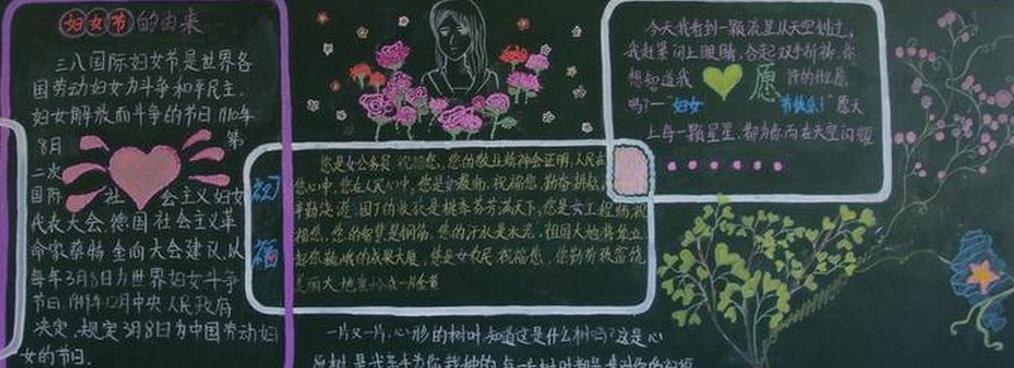 妇女节的由来
三八国际妇女节是世界各
国劳动妇女为斗争和平民主,
妇女解放而斗争的节日1910年
8月 第
二次
国际 社 会主义妇女
代表大会,德国社会主义革
命家蔡特金向大会建议,从
每年3月8日为世界妇女斗争
节日.1949年12月中央人民政府
决定,规定3月8日为中国劳动妇
女的节日.
祝
福
您是女公务员 祝福您,您的敬业精神会证明,人民在
您心中,您在人民心中,您是女教师,祝福您,勤奋耕耘
您是女工程师祝
福您,您的智慧是钢筋,您的汗水是水泥,祖国大地耸立
起您巍峨的成果大厦,您是女农民 祝福您,您勤劳
美丽大地
今天我看到一颗流星从天空划过,
我赶紧闭上眼睛,合起双手祈祷.你
想知道我 愿
吗?— 妇女 节快乐! 愿天
上每一颗星星,都为你而在天空闪耀
一片又一片,心形的树叶,知道这是什么树吗?这是心